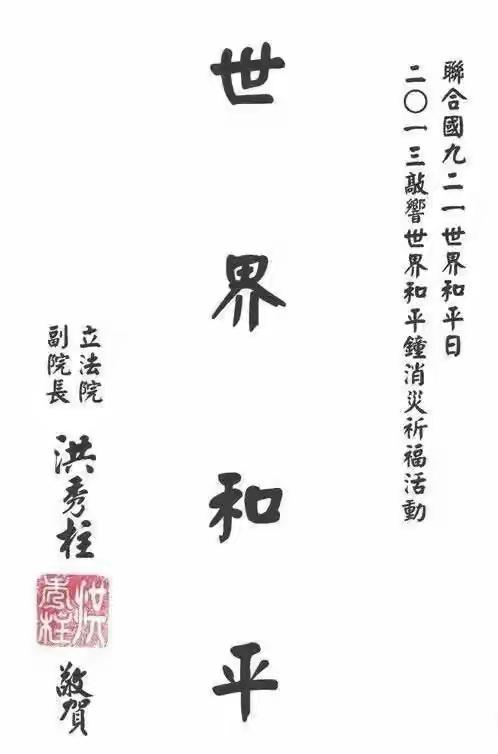 聯合國九二一世界和平日
二〇一三敲響世界和平鐘消災祈福活動
世界和平
立法院
副院長
洪秀柱
洪秀柱
敬賀